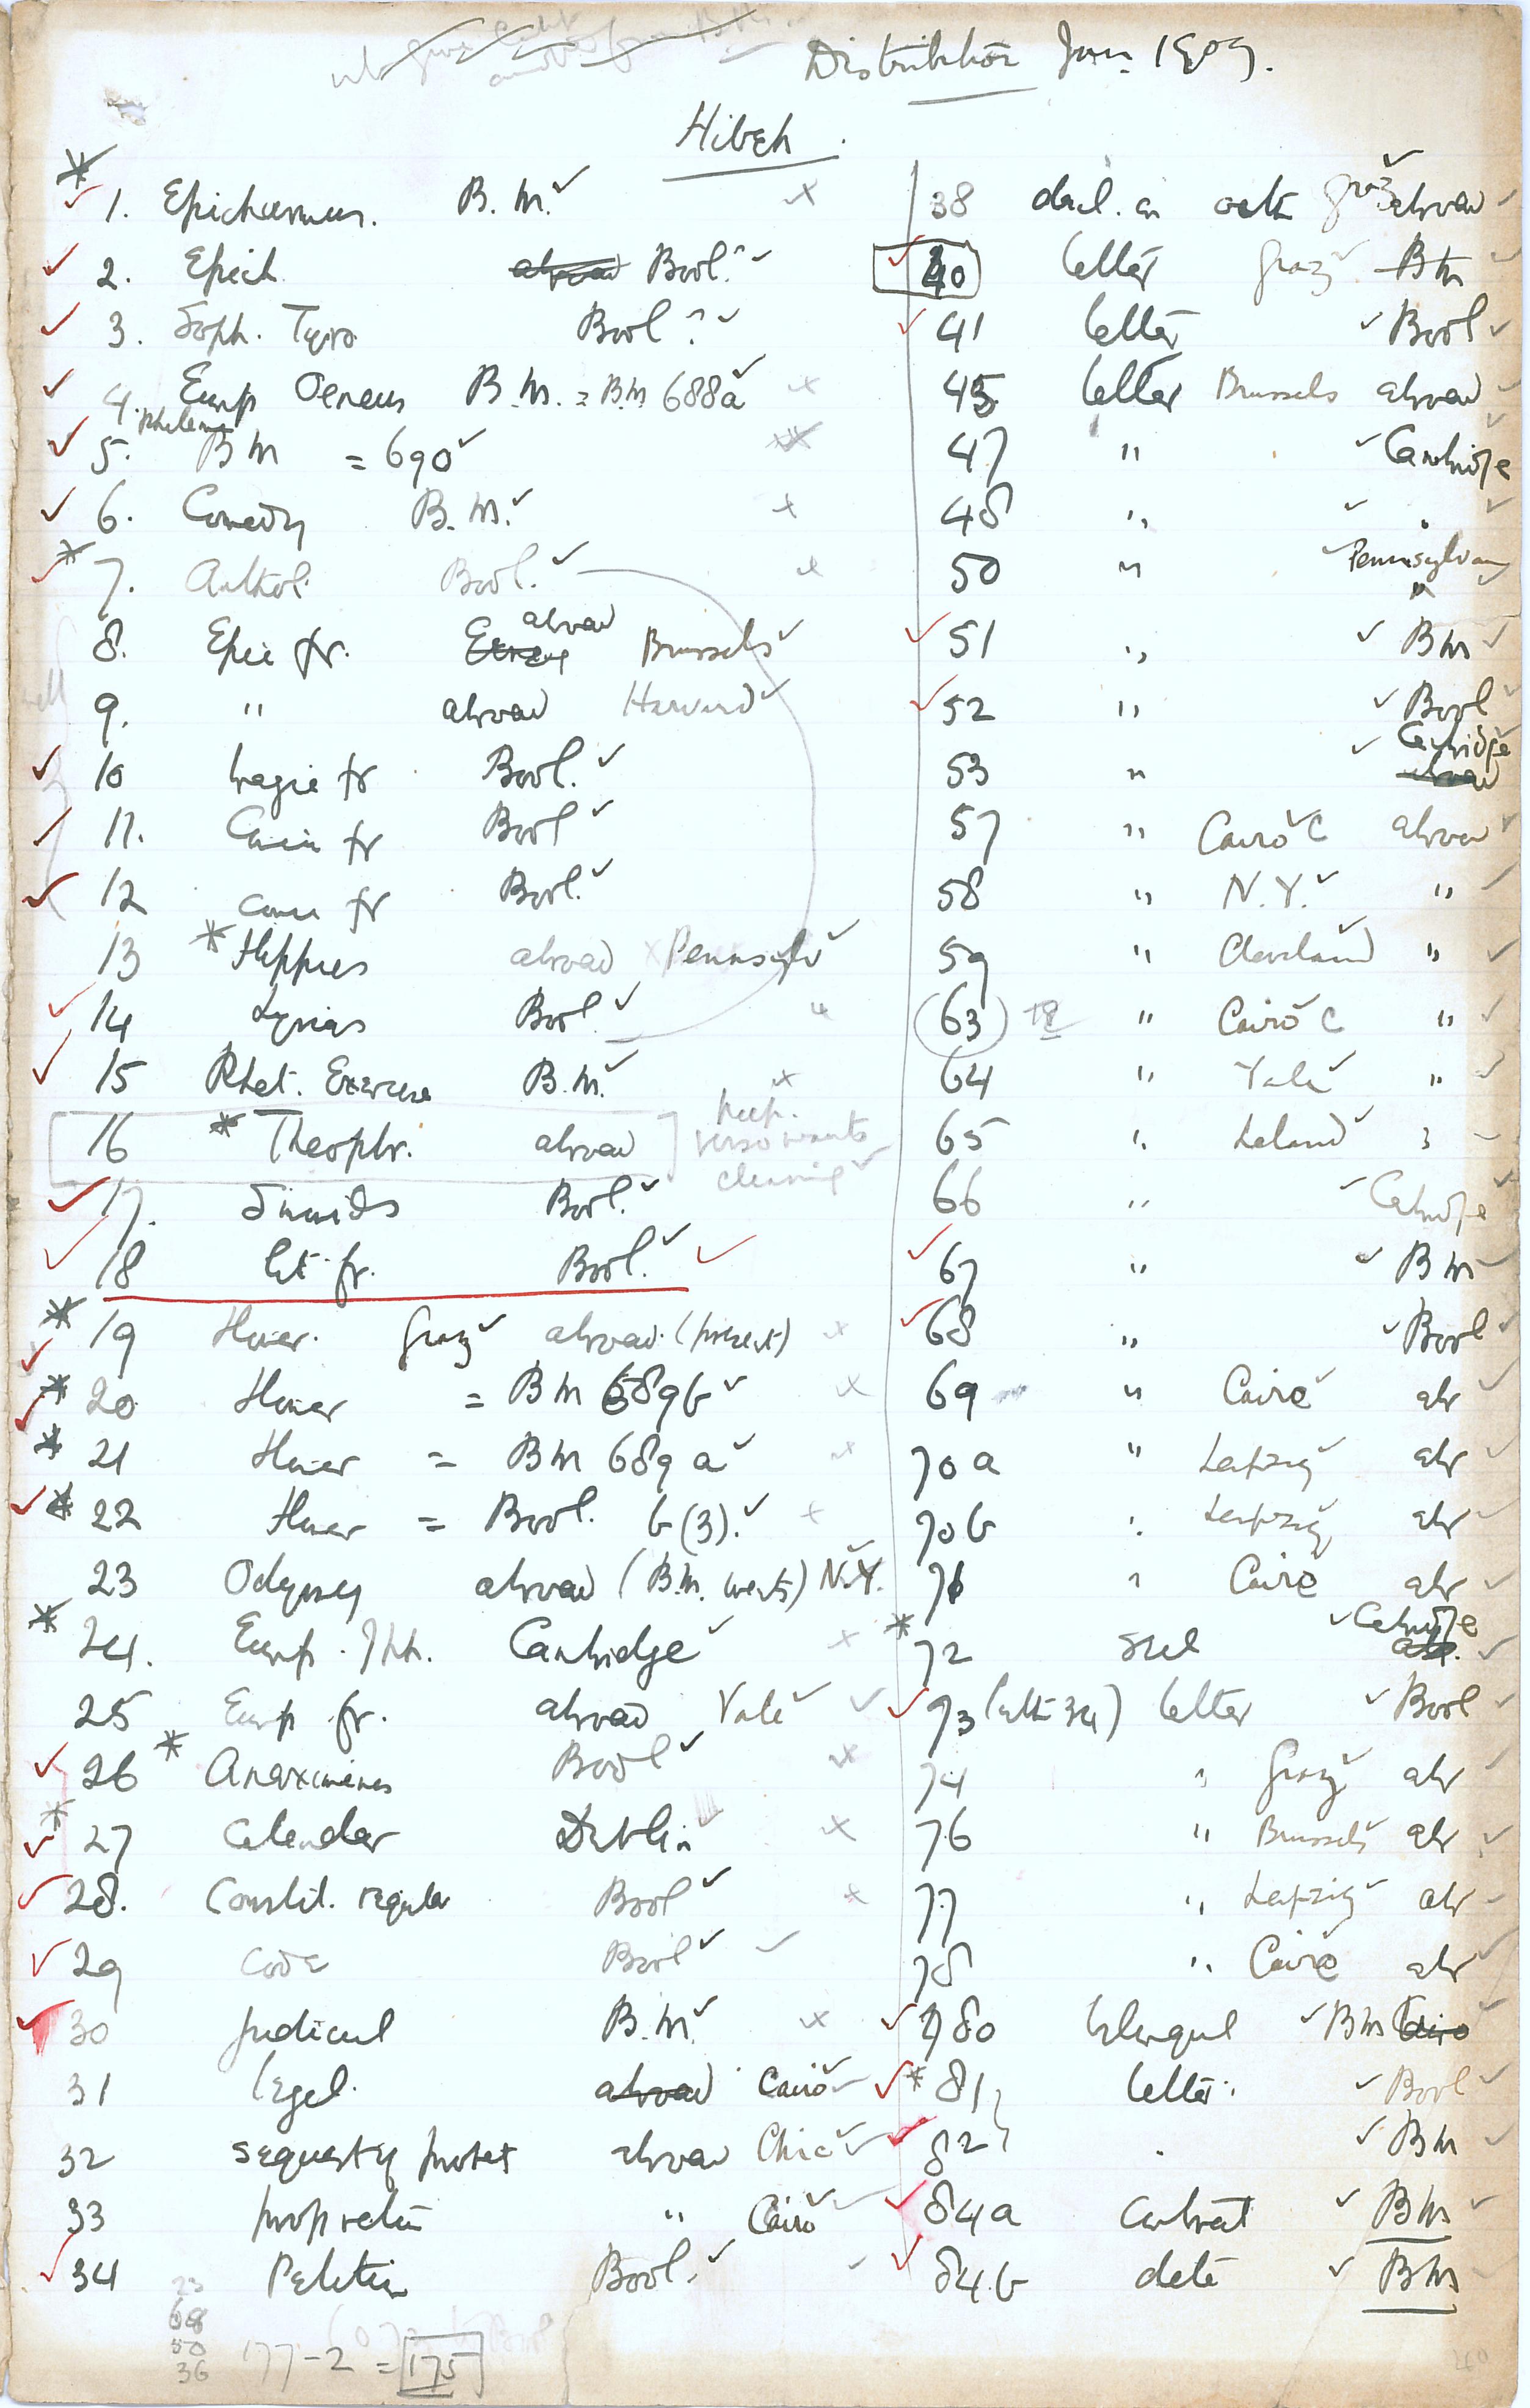 Distribution Jan. 1909.
Hibeh.
1. Epicharmus. B.M.
2. Epich. abroad Bodl.
3. Soph. Tyro Bodl
4. Eurip Oeneus B.M. = BM 688a
5. Philemon BM = 690
6. Comedy B.M.
7. Anthol. Bodl.
8. Epic fr. abroad Brussels
9. " abroad Harvard
10 tragic fr. Bodl.
11. Comic fr Bodl
12 comic fr Bodl.
13 * Hippias abroad Pennsylv
14 Lysias Bodl.
15 Rhet. Exercise B.M.
16 * Theophr. abroad
keep.
verso wants
cleaning
17. Simonids Bodl.
18 lit. fr. Bodl.
* 19 Homer. Graz abroad (present)
* 20 Homer = BM 689b
* 21 Homer = BM 689a
* 22 Homer = Bodl. b(3).
23 Odyssey abroad (B.M. wants) N.Y.
* 24. Eurip. Iph. Cambridge
25 Eurip. fr. abroad Yale
26 * Anaximenes Bodl
* 27 Calendar Dublin
28. Constit. regular Bodl
29 Code Bodl
30 Judicial B.M.
31 legal. abroad Cairo
32 sequestr of protest abroad Chic
33 " Cairo
34 Petition Bodl.
23
68
50
36
177-2 = 175
38 decl. on oath Graz abroad
40 letter Graz BM
41 letter Bodl
45 letter Brussels abroad
47 " Cambridge
48 " "
50 " Pennsylvany
"
51 " BM
52 " Bodl
53 " Cambridge abroad
57 " Cairo C abroad
58 " N.Y. "
59 " Cleveland "
(63) " Cairo C "
64 " Yale "
65 " Leland "
66 " Cambridge
67 " BM
68 " Bodl
69 " Cairo abr
70a " Leipzig abr
70b " Leipzig abr
71 " Cairo abr
* 72 seal Cambridge abr.
73 (with 34) letter Bodl
74 " Graz abr
76 " Brussels abr
77 " Leipzig abr
78 " Cairo abr
80 BM Cairo
* 81 letter Bodl
82 " BM
84a contract BM
84b date BM